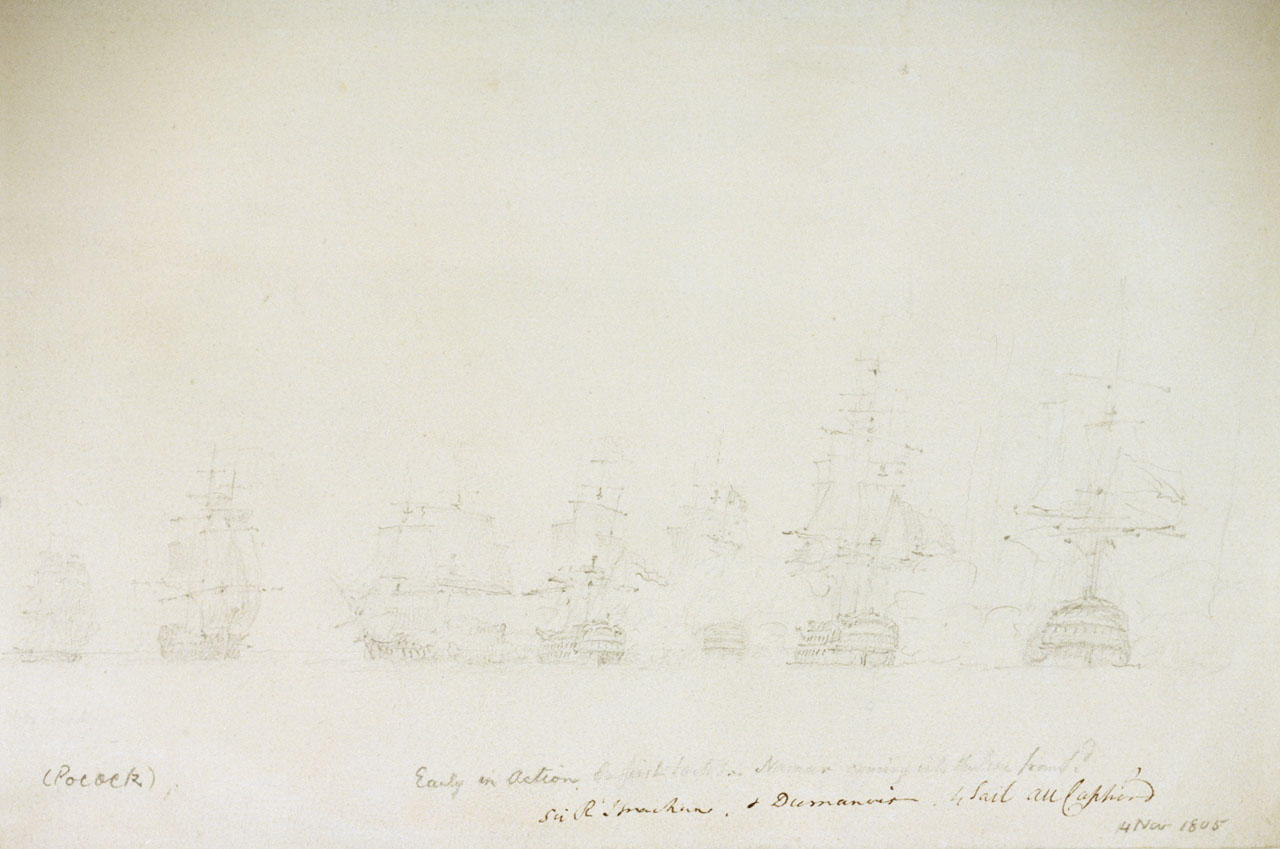 (Pocock)
Early in Action, Namur coming into
Sir R Strachan, & Dumanoir 4 Sail all Captur'd
4 Nov 1805